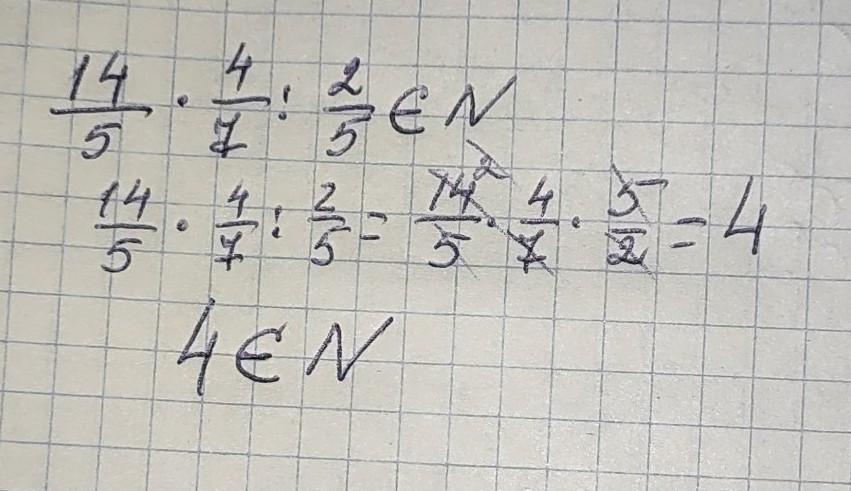 14/5 · 4/7 : 2/5 ∈ N
14/5 · 4/7 : 2/5 = 14²/5 · 4/7 · 5/2 = 4
4 ∈ N